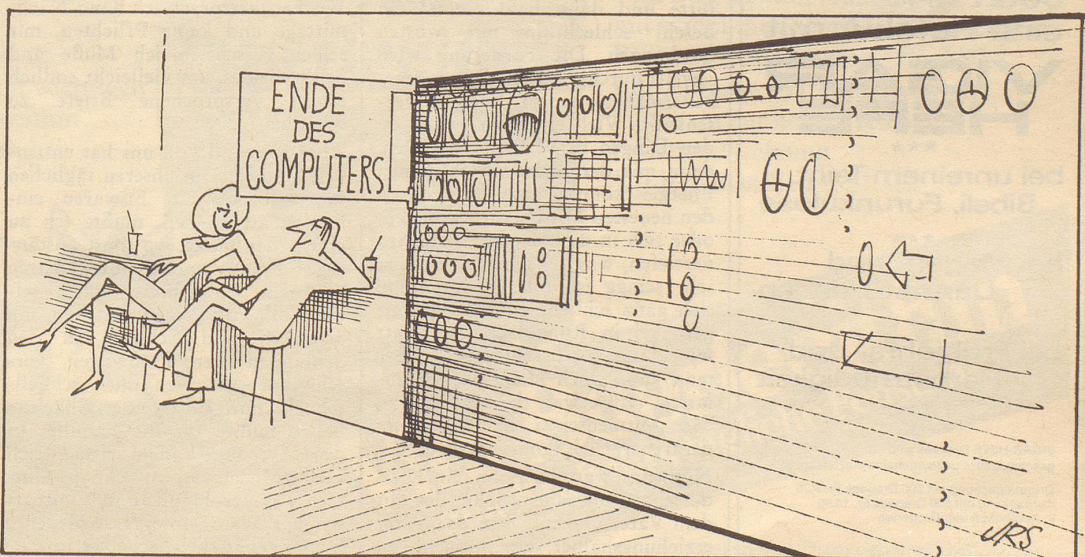 ENDE
DES
COMPUTERS
URS